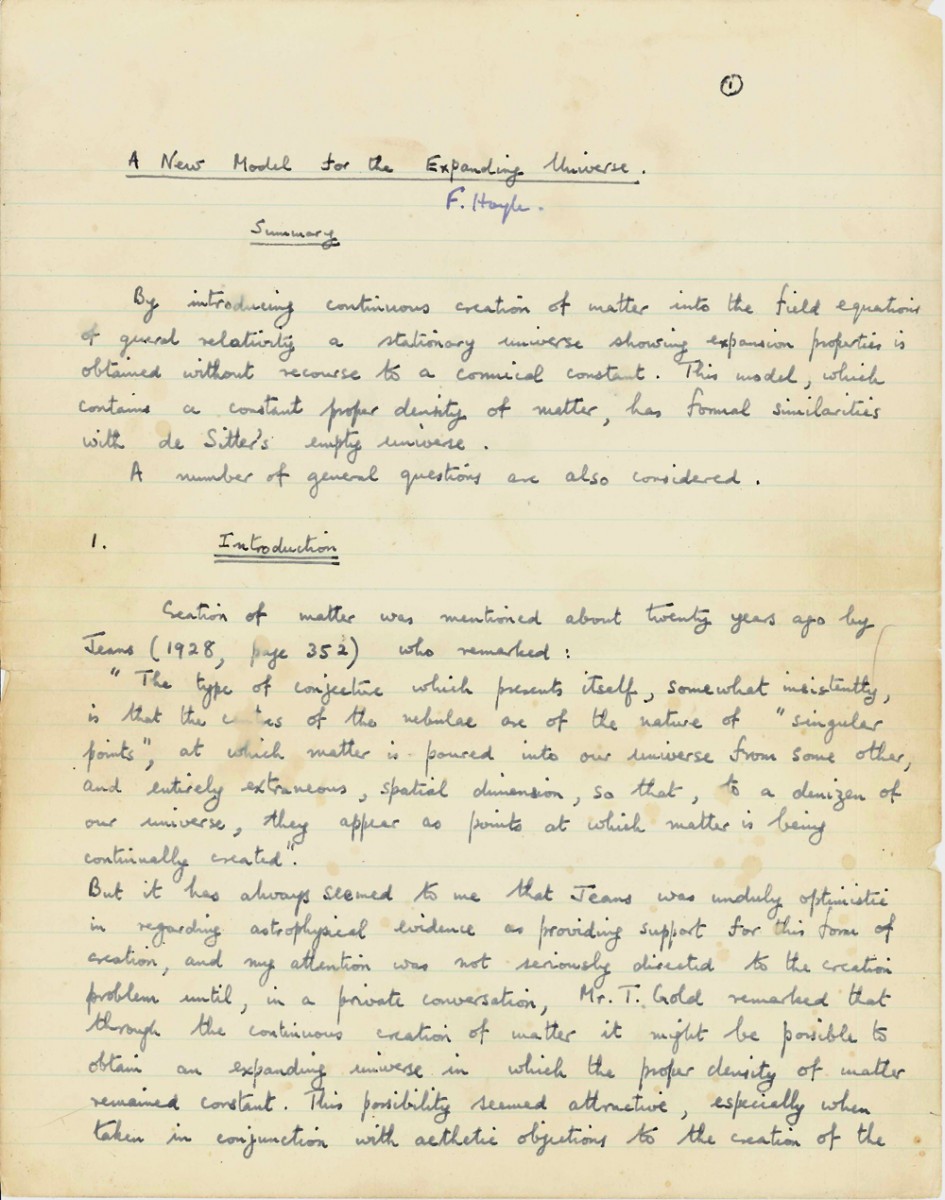 ①
A New Model for the Expanding Universe.
F. Hoyle.
Summary
By introducing continuous creation of matter into the field equations
of general relativity a stationary universe showing expansion properties is
obtained without recourse to a cosmical constant. This model, which
contains a constant proper density of matter, has formal similarities
with de Sitter's empty universe.
A number of general questions are also considered.
1. Introduction
Creation of matter was mentioned about twenty years ago by
Jeans (1928, page 352) who remarked:
" The type of conjecture which presents itself, somewhat insistently,
is that the of the nebulae are of the nature of "singular
points", at which matter is poured into our universe from some other,
and entirely extraneous, spatial dimension, so that, to a denizen of
our universe, they appear as points at which matter is being
continually created".
But it has always seemed to me that Jeans was unduly optimistic
in regarding astrophysical evidence as providing support for this form of
creation, and my attention was not seriously directed to the creation
problem until, in a private conversation, Mr. T. Gold remarked that
through the continuous creation of matter it might be possible to
obtain an expanding universe in which the proper density of matter
remained constant. This possibility seemed attractive, especially when
taken in conjunction with aesthetic objections to the creation of the